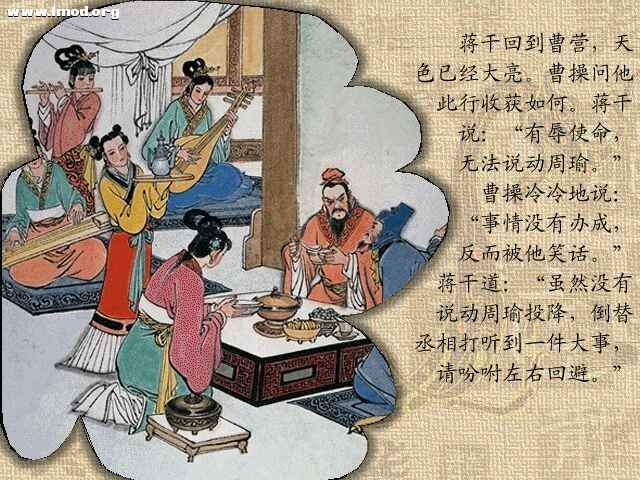 www.1mod.org
蒋干回到曹营，天
色已经大亮。曹操问他
此行收获如何。蒋干
说：“有辱使命，
无法说动周瑜。”
曹操冷冷地说：
“事情没有办成，
反而被他笑话。”
蒋干道：“虽然没有
说动周瑜投降，倒替
丞相打听到一件大事，
请吩咐左右回避。”